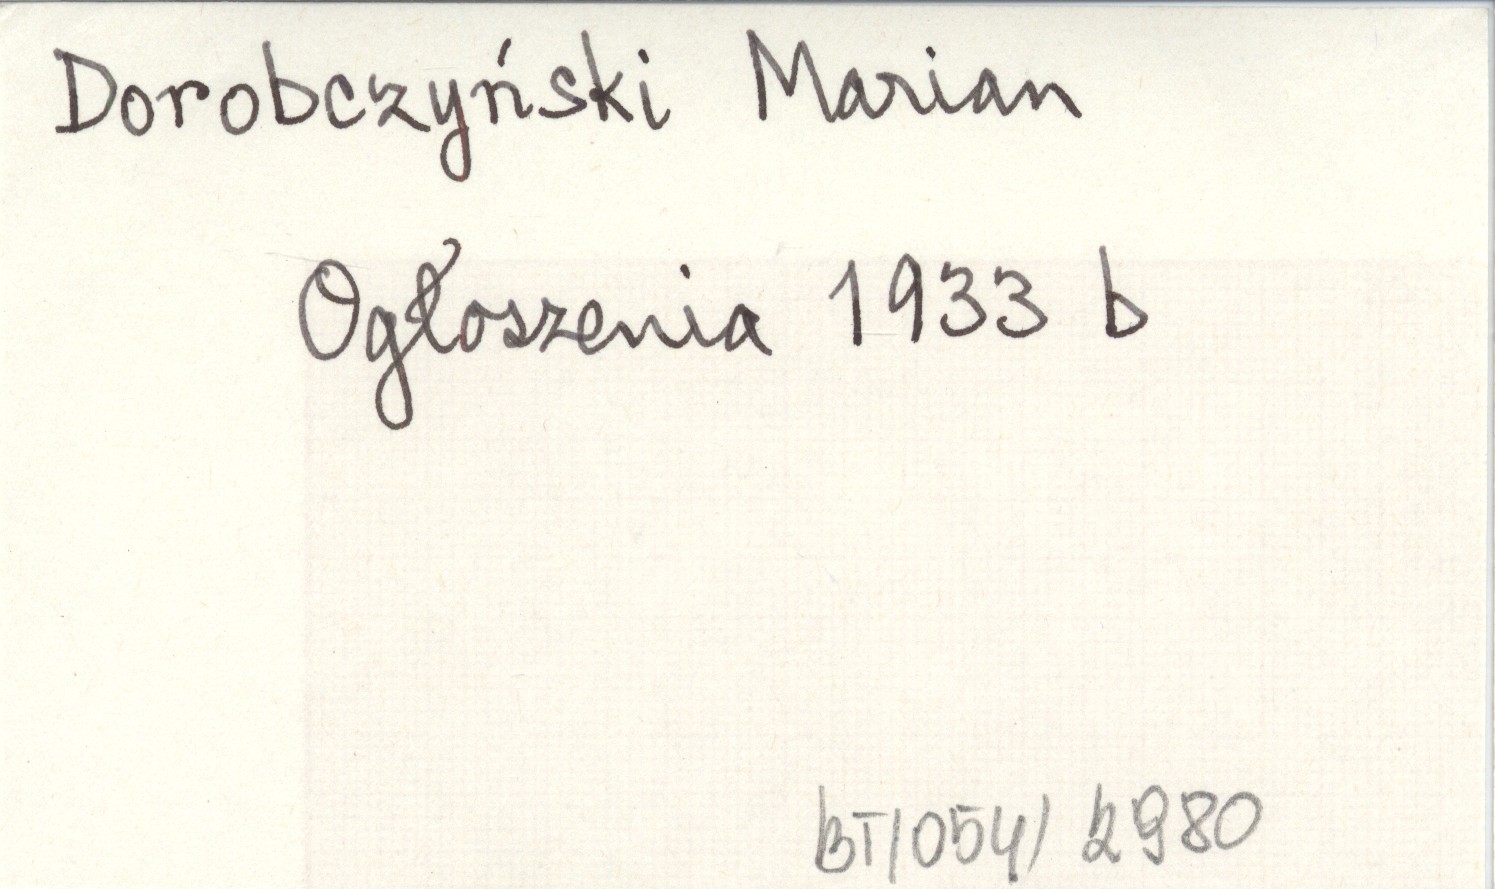 Dorobczyński Marian
Ogłoszenia 1933 b
BT/054/2980